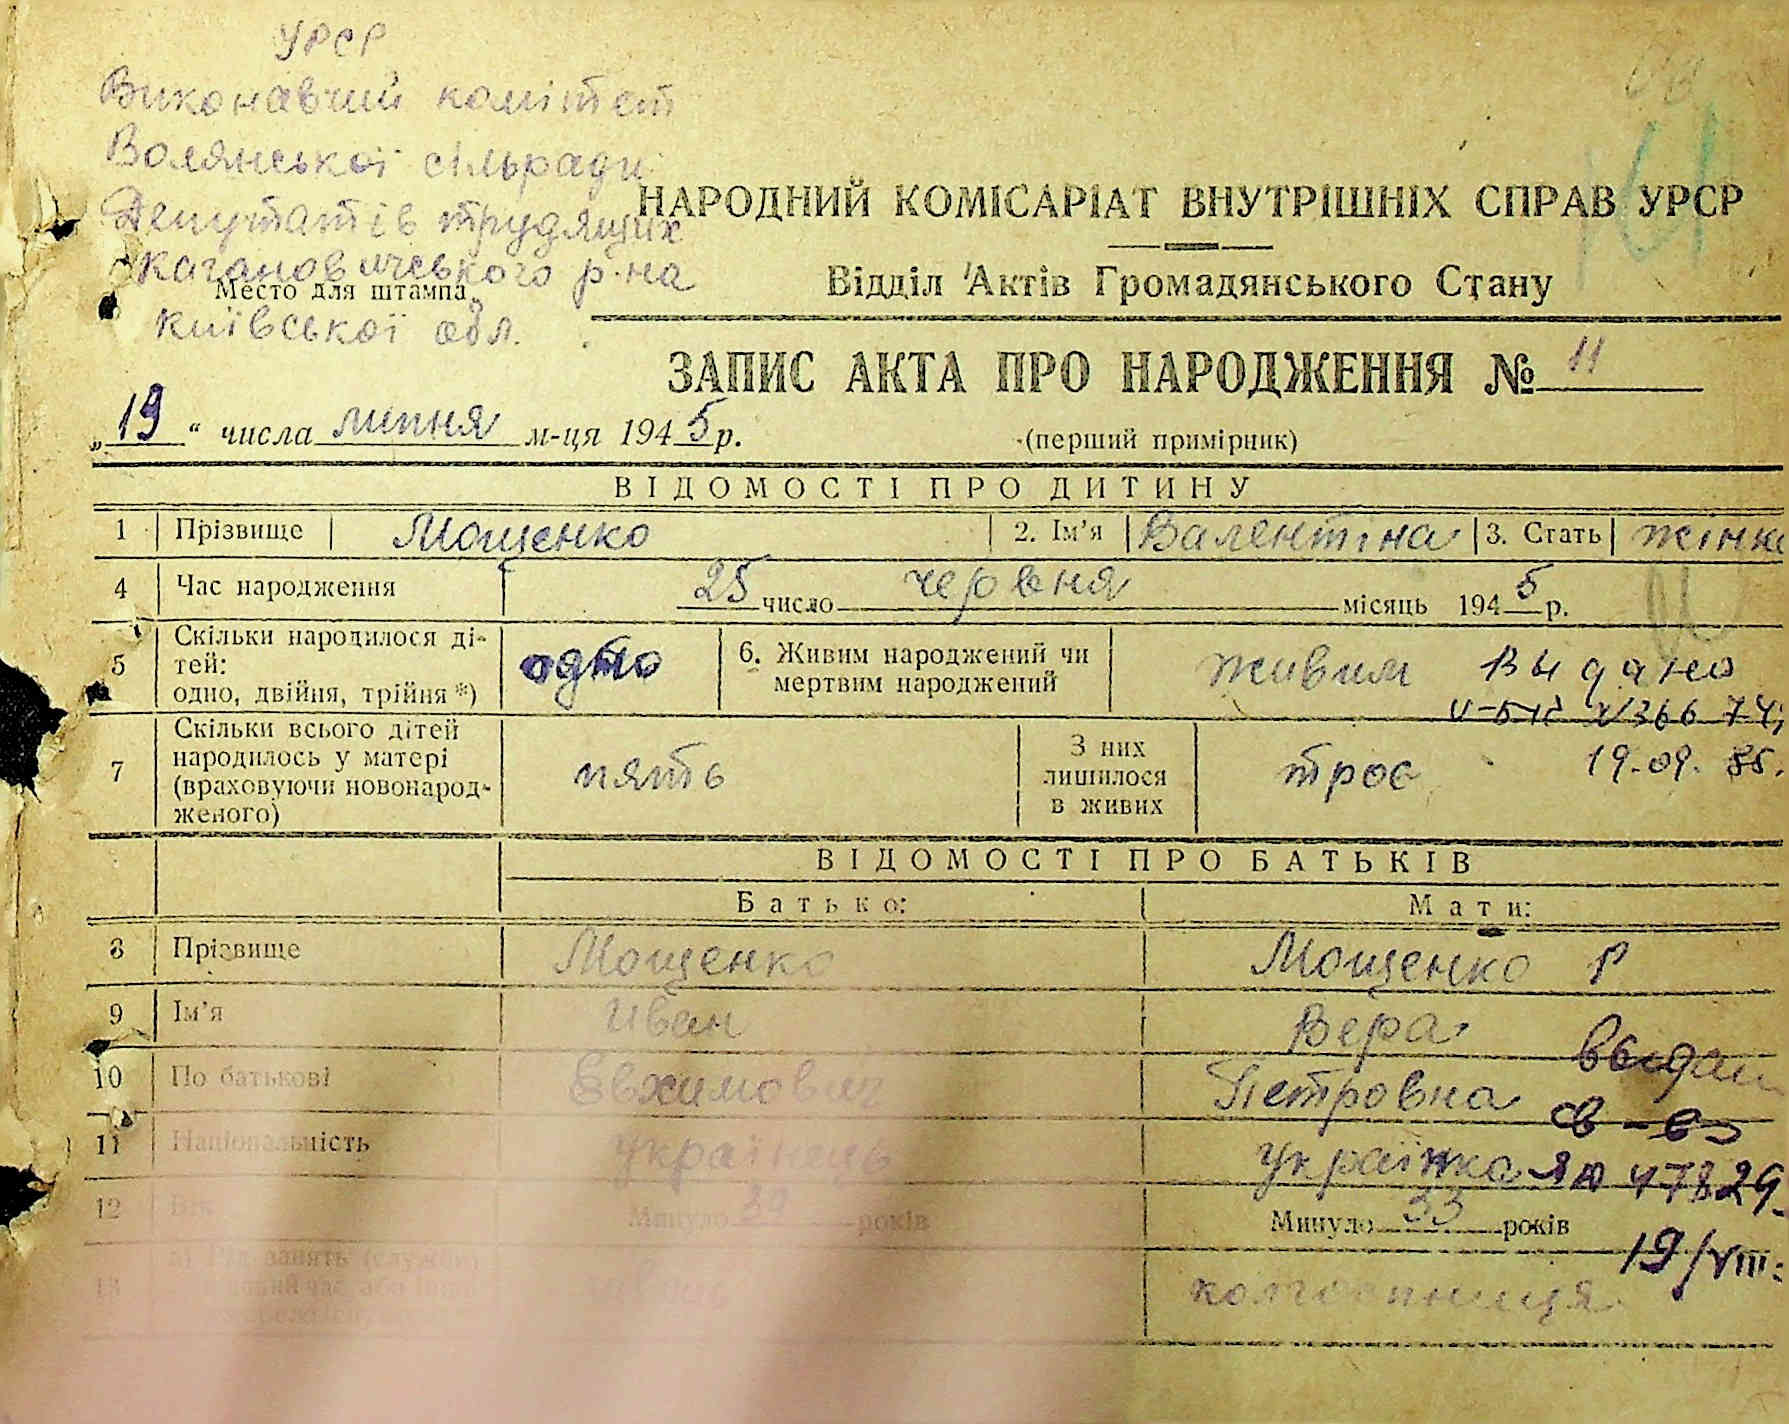 УРСР
Виконавчий комітет
Волянської сільради
Депутатів трудящих
Кагановичського р-на
Место для штампа
Київської обл.
НАРОДНИЙ КОМІСАРІАТ ВНУТРІШНІХ СПРАВ УРСР
Відділ Актів Громадянського Стану
ЗАПИС АКТА ПРО НАРОДЖЕННЯ № 11
„19“ числа липня м-ця 1945 р.
(перший примірник)
ВІДОМОСТІ ПРО ДИТИНУ
1 Прізвище Мощенко 2. Ім'я Валентіна 3. Стать жінк
4 Час народження 25 число червня місяць 1945 р.
5 Скільки народилося ді-
тей:
одно, двійня, трійня *) одно 6. Живим народжений чи
мертвим народжений живим
Выдано
19.09. 85.
7 Скільки всього дітей
народилось у матері
(враховуючи новонарод-
женого) пять З них
лишилося
в живих троє
ВІДОМОСТІ ПРО БАТЬКІВ
Батько: Мати:
8 Прізвище Мощенко Мощенко
9 Ім'я Иван Вера
10 По батькові Евхимович Петровна
11 Національність українець українка
12 Вік Минуло 39 років Минуло 33 років
выдан
св-во
ЯЮ 47829
19/VIII
13 колгоспниця